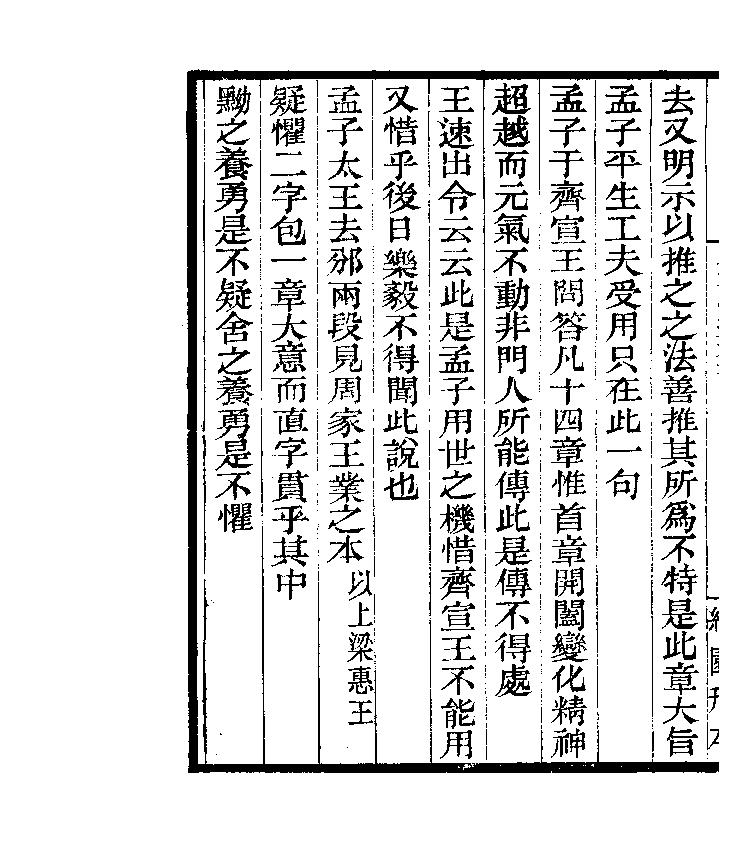 去又明示以推之之法善推其所爲不特是此章大旨
孟子平生工夫受用只在此一句
孟子于齊宣王問答凡十四章惟首章開闔變化精神
超越而元氣不動非門人所能傳此是傳不得處
王速出令云云此是孟子用世之機惜齊宣王不能用
又惜乎後日樂毅不得聞此說也
孟子太王去邠兩段見周家王業之本以上梁惠王
疑懼二字包一章大意而直字貫乎其中
黝之養勇是不疑舍之養勇是不懼